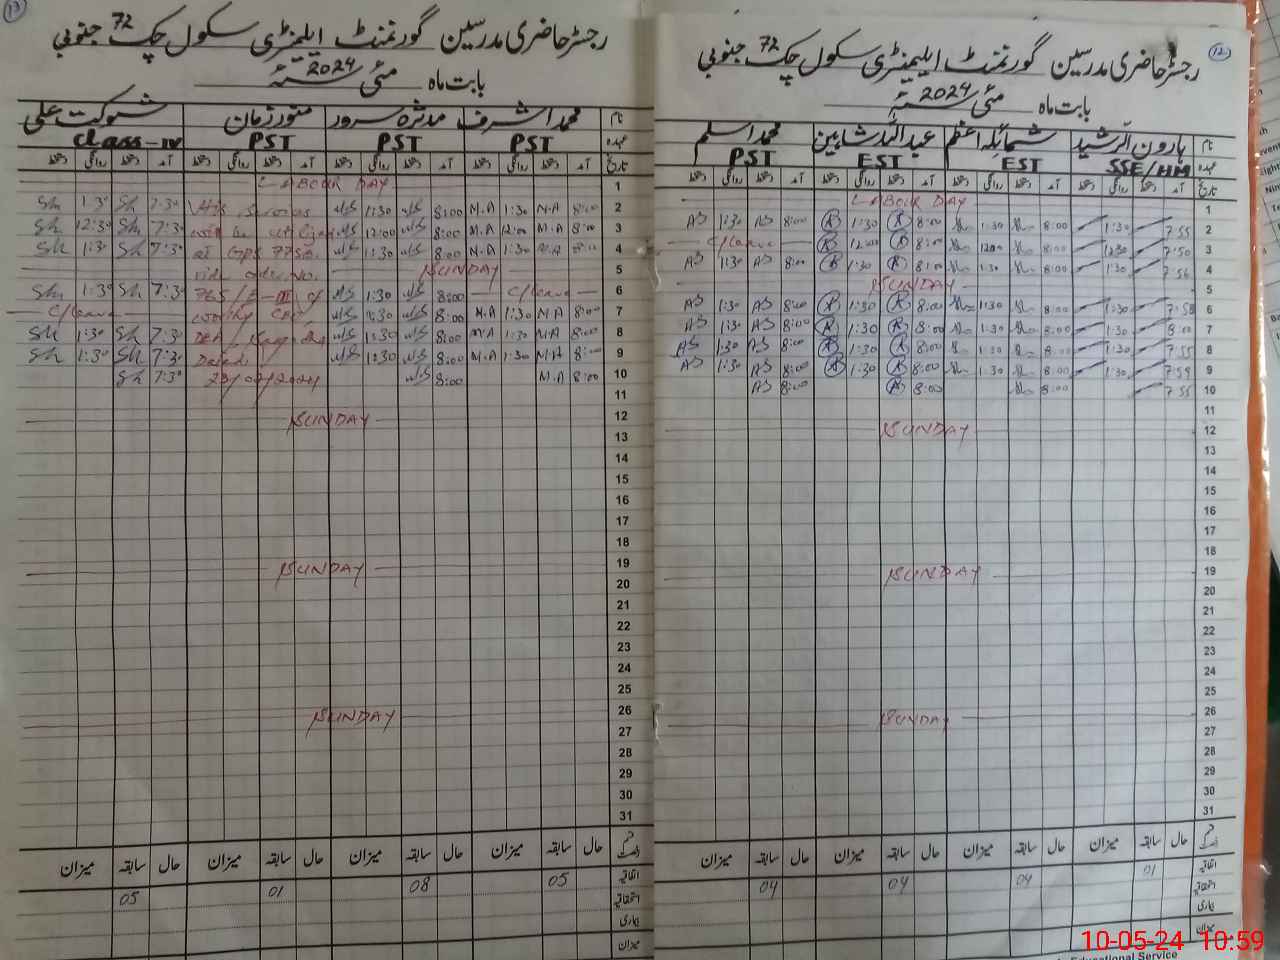 12
رجسٹر حاضری مدرسین گورنمنٹ ایلیمنٹری سکول چک 72 جنوبی
بابت ماہ مئی 2024
نام ہارون الرشید شمائلہ اعظم عبداللہ شاہین محمد اسلم
عہدہ SSE/HM EST EST PST
تاریخ آمد دستخط روانگی دستخط آمد دستخط روانگی دستخط آمد دستخط روانگی دستخط آمد دستخط روانگی دستخط
1 LABOUR DAY
2 7:55 1:30 8:00 1:30 8:00 1:30 8:00 AS 1:30 AS
3 7:50 12:30 8:00 1200 8:00 12:00 C/leave
4 7:56 1:30 8:00 1:30 8:00 1:30 8:00 AS 1:30 AS
5 SUNDAY
6 7:58 1:30 8:00 1:30 8:00 1:30 8:00 AS 1:30 AS
7 8:00 1:30 8:00 1:30 8:00 1:30 8:00 AS 1:30 AS
8 7:55 1:30 8:00 1:30 8:00 1:30 8:00 AS 1:30 AS
9 7:59 1:30 8:00 1:30 8:00 1:30 8:00 AS 1:30 AS
10 7:55 8:00 8:00 8:00 AS
11
12 SUNDAY
13
14
15
16
17
18
19 SUNDAY
20
21
22
23
24
25
26 SUNDAY
27
28
29
30
31
حال سابقہ میزان حال سابقہ میزان حال سابقہ میزان حال سابقہ میزان
اتفاقیہ 01 04 04 04
بیماری
میزان
13
رجسٹر حاضری مدرسین گورنمنٹ ایلیمنٹری سکول چک 72 جنوبی
بابت ماہ مئی 2024
نام محمد اشرف مدثرہ سرور منور زمان شوکت علی
عہدہ PST PST PST Class-IV
تاریخ آمد دستخط روانگی دستخط آمد دستخط روانگی دستخط آمد دستخط روانگی دستخط آمد دستخط روانگی دستخط
1 LABOUR DAY
2 8:00 M.A 1:30 M.A 8:00 1:30 His Services 7:30 Sh 1:30 Sh
3 8:00 M.A 12:00 M.A 8:00 12:00 will be utilized 7:30 Sh 12:30 Sh
4 8:00 M.A 1:30 M.A 8:00 1:30 at GPS 77SB 7:30 Sh 1:30 Sh
5 SUNDAY vide order No.
6 C/leave 8:00 1:30 765/E-III of 7:30 Sh 1:30 Sh
7 8:00 M.A 1:30 M.A 8:00 1:30 worthy CEO C/leave
8 8:00 M.A 1:30 M.A 8:00 1:30 DEA 7:30 Sh 1:30 Sh
9 8:00 M.A 1:30 M.A 8:00 1:30 Dated: 7:30 Sh 1:30 Sh
10 8:00 M.A 8:00 23/02/2024 7:30 Sh
11
12 SUNDAY
13
14
15
16
17
18
19 SUNDAY
20
21
22
23
24
25
26 SUNDAY
27
28
29
30
31
حال سابقہ میزان حال سابقہ میزان حال سابقہ میزان حال سابقہ میزان
اتفاقیہ 05 08 01 05
بیماری
میزان
10-05-24 10:59
Educational Service